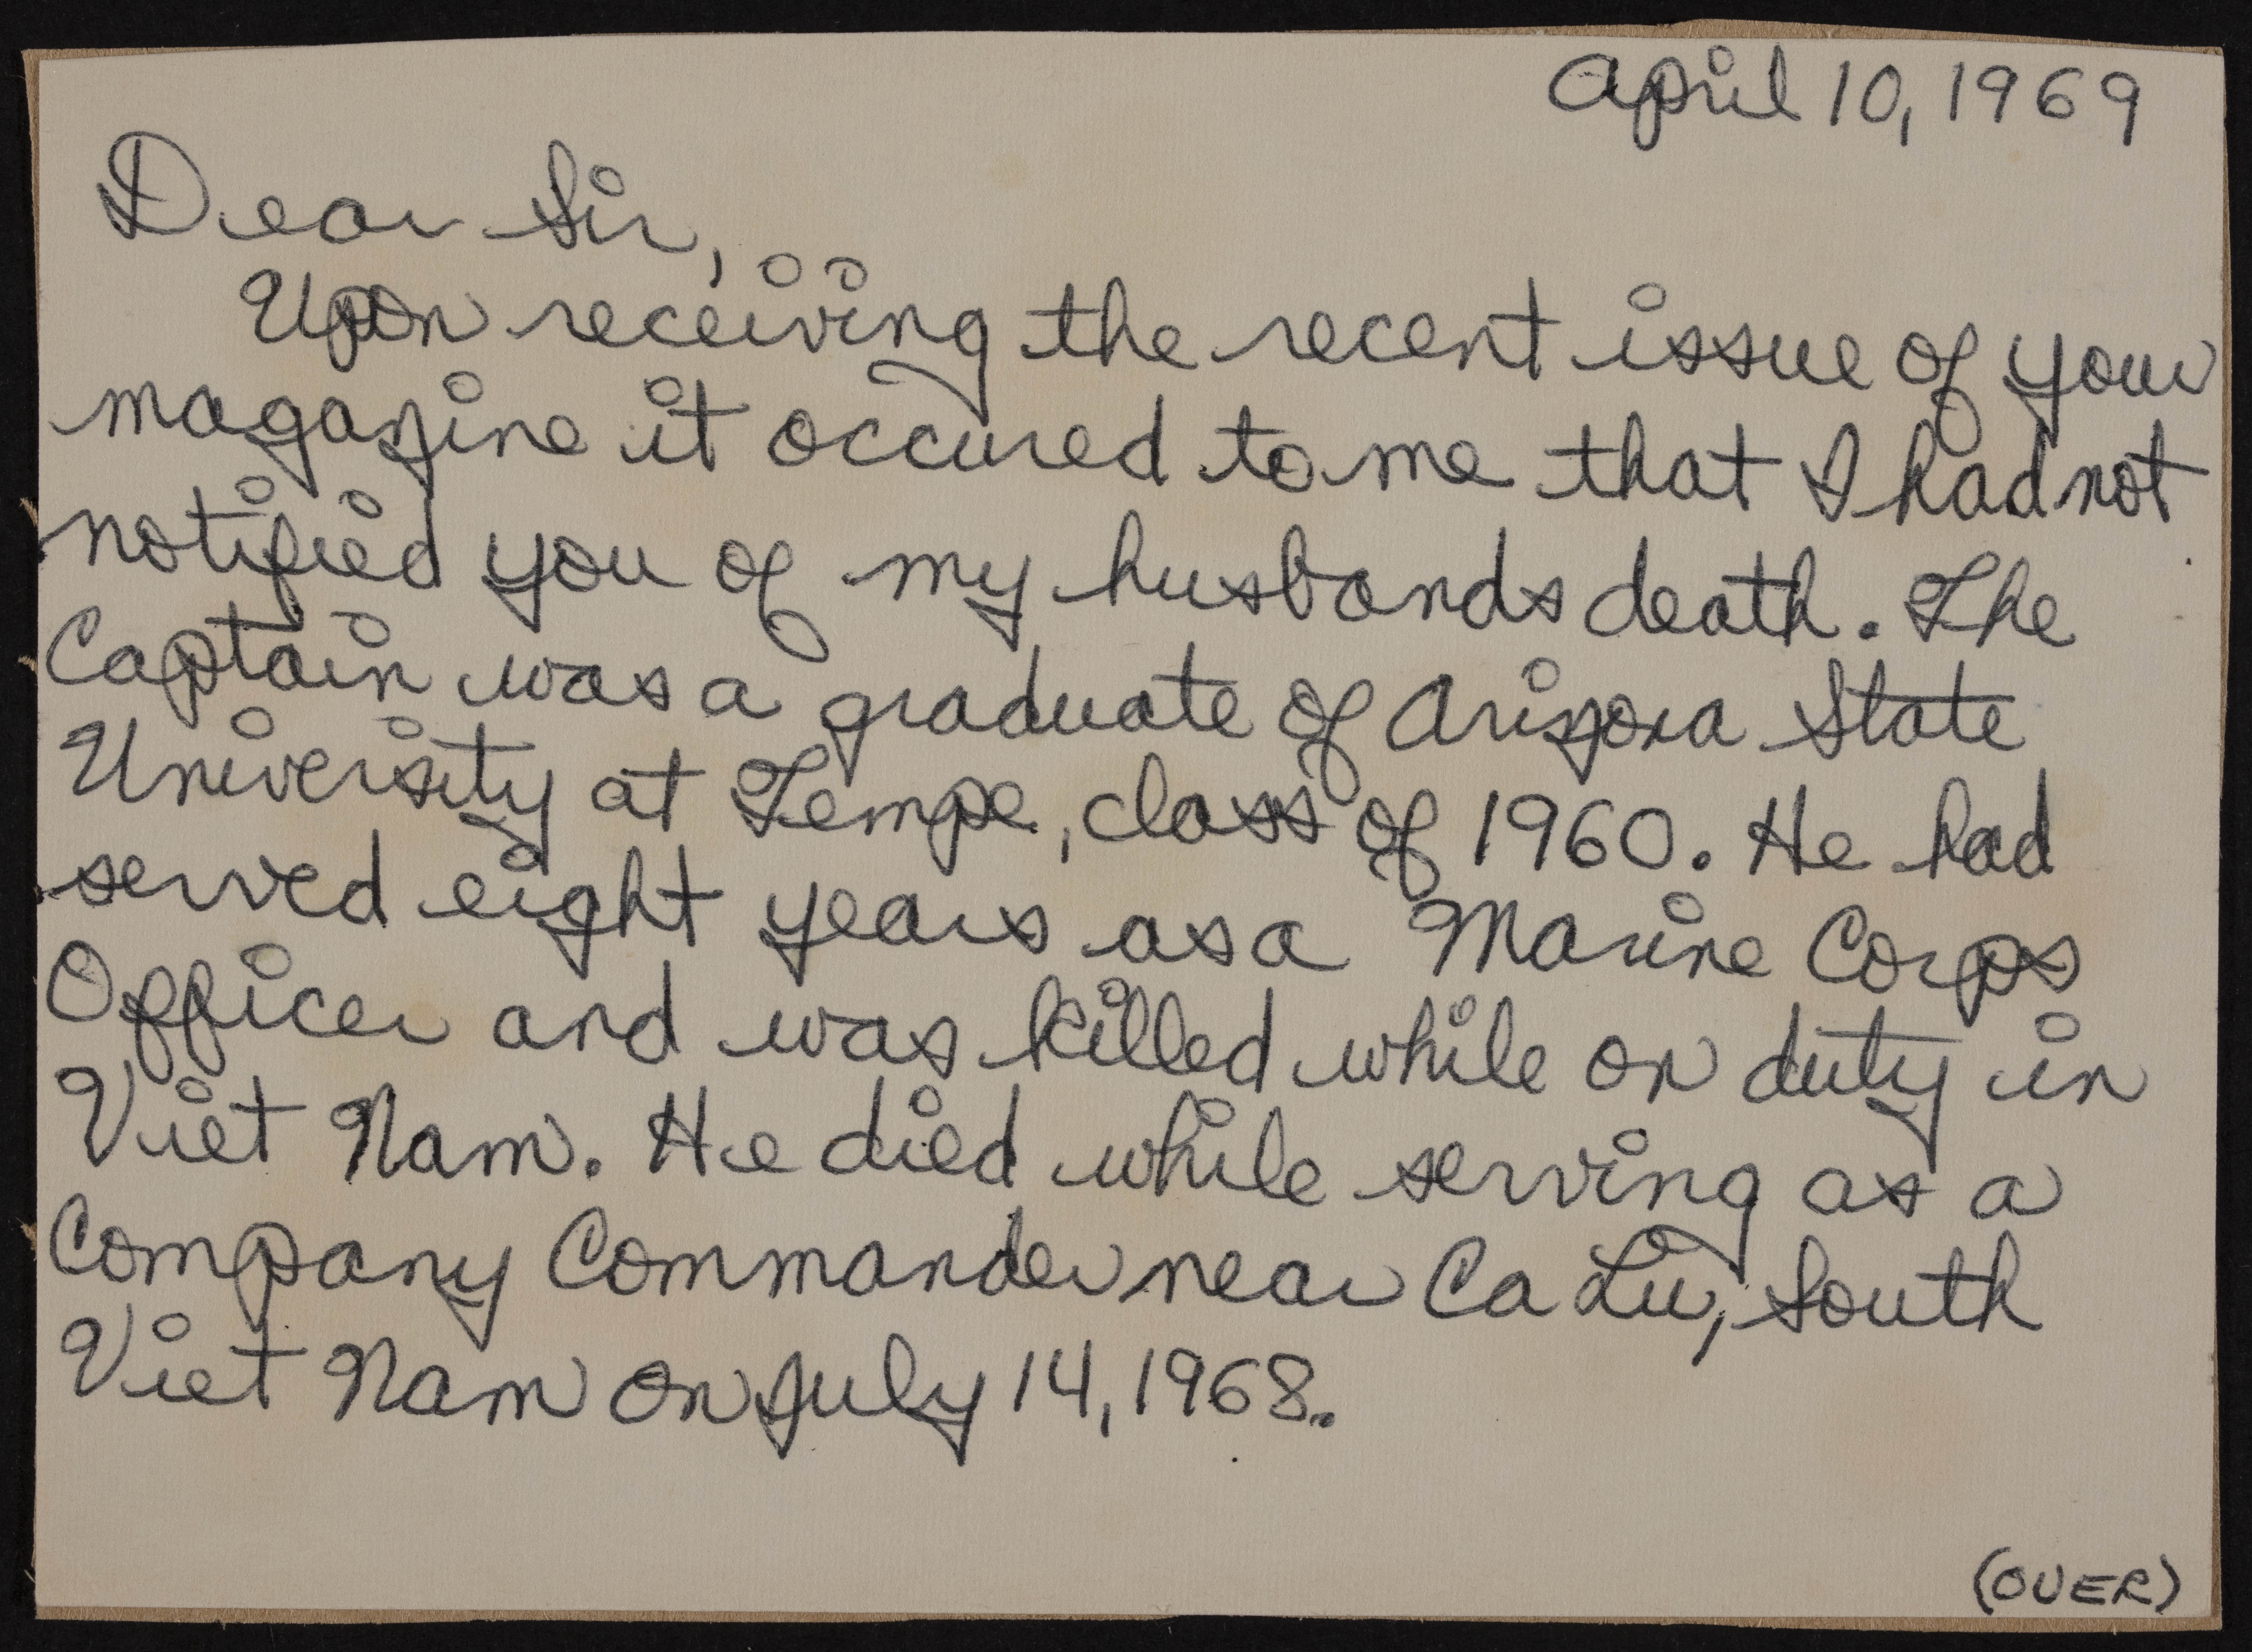 April 10, 1969
Dear Sir,
Upon receiving the recent issue of your
magazine it occured to me that I had not
notified you of my husbands death. The
Captain was a graduate of Arizona State
University at Tempe, class of 1960. He had
served eight years as a Marine Corps
Officer and was killed while on duty in
Viet Nam. He died while serving as a
Company Commander near Ca Lu, South
Viet Nam on July 14, 1968.
(OVER)